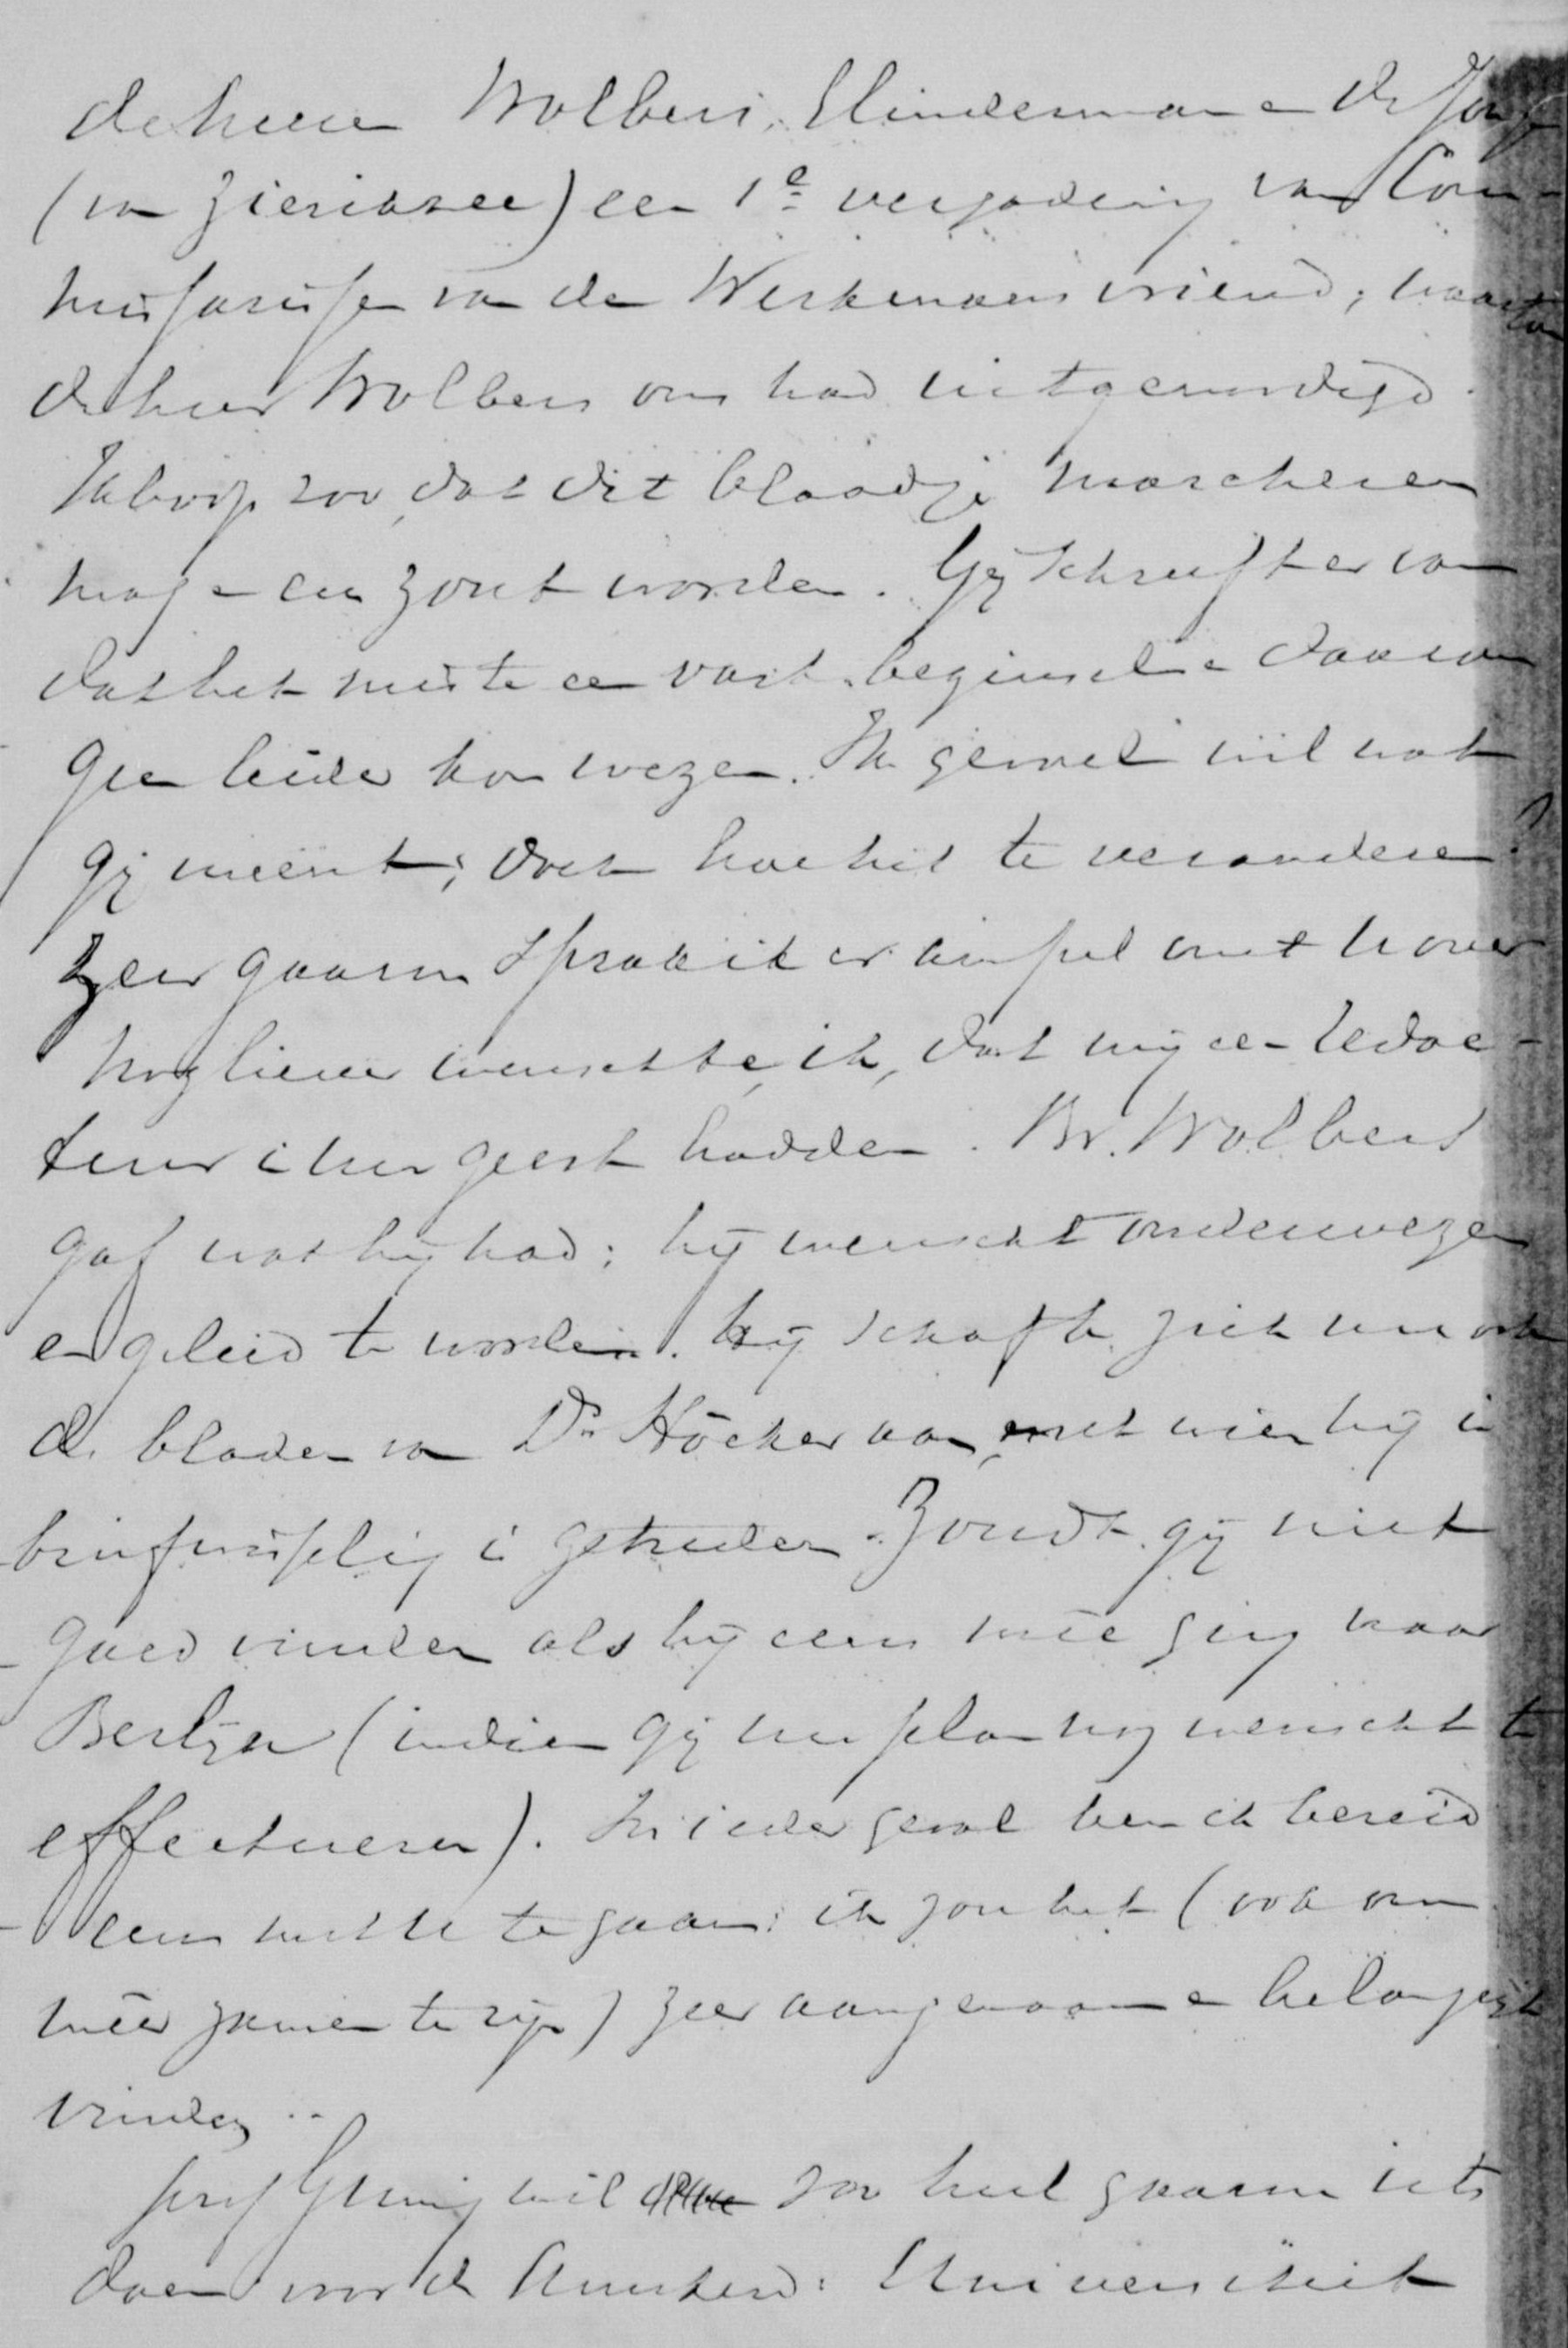 de heeren Wolbers, Elinderman en de Jonge
(van Zierikzee) een 1e vergadering van Com-
missarissen van den Werkmansvriend; waartoe
de heer Wolbers ons had uitgenoodigd.
Ik hoop zoo, dat dit blaadje marcheeren
mag en een zout worden. Gij schreeft er van
dat het miste een vast beginsel en daarom
geen leider kon wezen. Ik gevoel wel wat
gij meent; doch hoe het te veranderen?
Zeer gaarne sprak ik er simpel met u over
nog liever wenschte, ik, dat wij een redac-
teur in uw geest hadden. Br. Wolbers
gaf wat hij had; hij wenscht onderwezen
en geleid te worden. Hij schafte zich nu ook
de bladen van Dr. Stöcker aan, met wien hij in
briefwisseling is getreden. Zoudt gij niet
goed vinden als hij eens meê ging naar
Berlijn (indien gij uw plan nog wenscht te
effectueren). In ieder geval ben ik bereid
eens met U te gaan; ik zou het (ook om
meer zamen te zijn) zeer aangenaam en belangrijk
vinden.
Prof Gunning wil zoo heel gaarne iets
doen voor de Amsterd: Universiteit